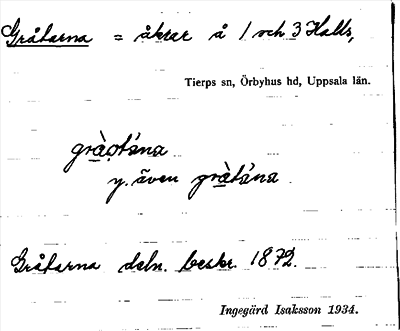 Gråtarna = åkrar å 1 och 3 Halls,
Tierps sn, Örbyhus hd, Uppsala län.
grà̱o̱tána
y. även grà̱tána
Gråtarna deln. beskr. 1872.
Ingegärd Isaksson 1934.